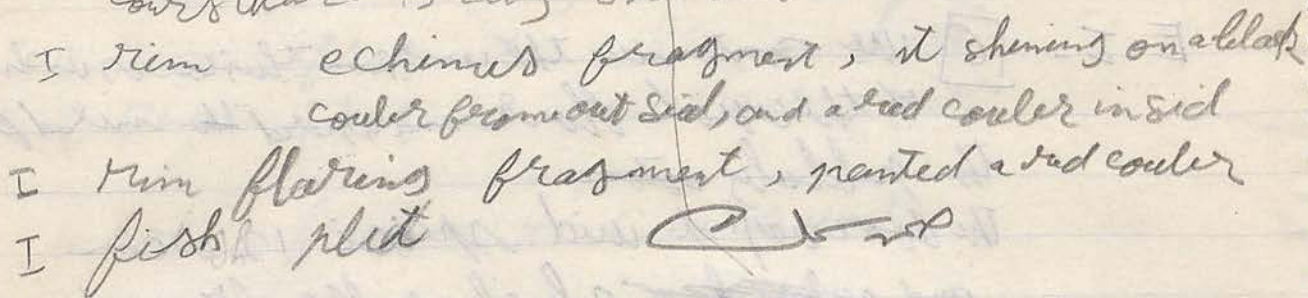 I rim echinus fragment, it shining on a black
couler frome out sid, and a red couler in sid
I rim flaring fragment, panted a red couler
I fish plit